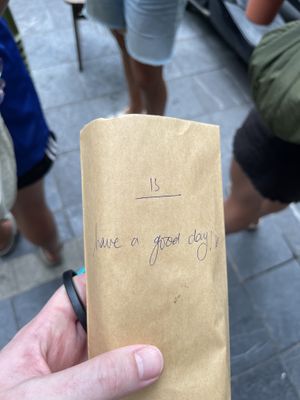 15
have a good day!